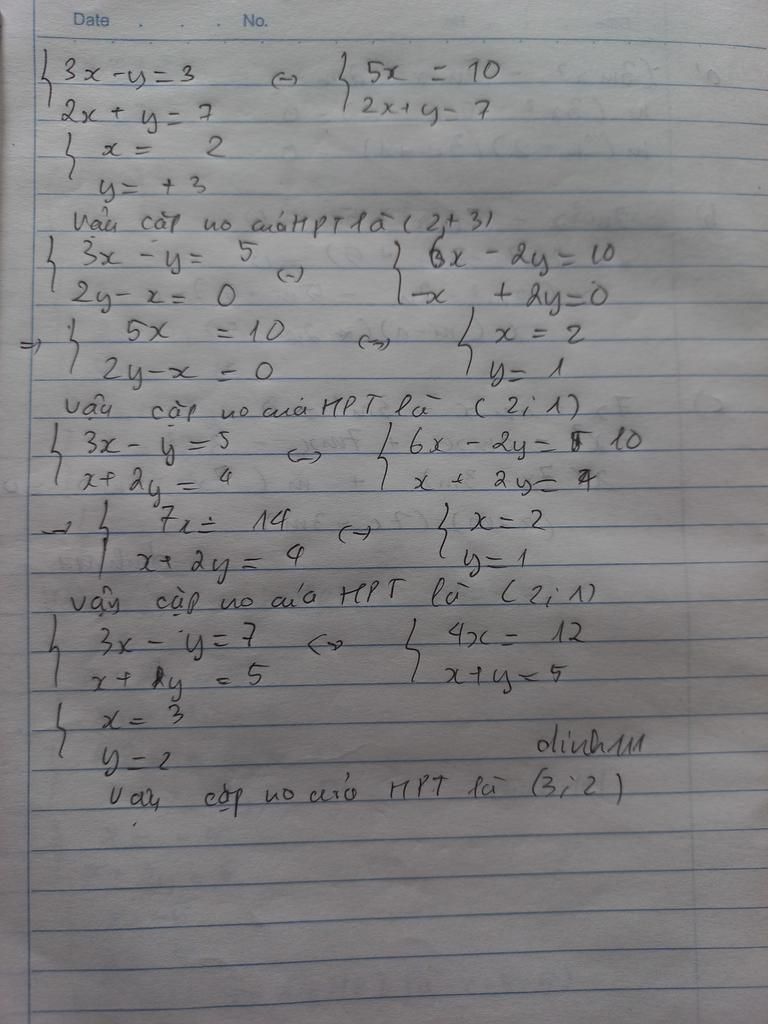 Date . . . No.
{ 3x - y = 3 <=> { 5x = 10
2x + y = 7 2x + y = 7
{ x = 2
y = + 3
Vậy cặp no của HPT là (2; + 3)
{ 3x - y = 5 <=> { 6x - 2y = 10
2y - x = 0 -x + 2y = 0
=> { 5x = 10 <=> { x = 2
2y - x = 0 y = 1
Vậy cặp no của HPT là (2; 1)
{ 3x - y = 5 <=> { 6x - 2y = 10
x + 2y = 4 x + 2y = 4
→ { 7x = 14 <=> { x = 2
x + 2y = 4 y = 1
Vậy cặp no của HPT là (2; 1)
{ 3x - y = 7 <=> { 4x = 12
x + y = 5 x + y = 5
{ x = 3
y = 2 olinh111
Vậy cặp no của HPT là (3; 2)